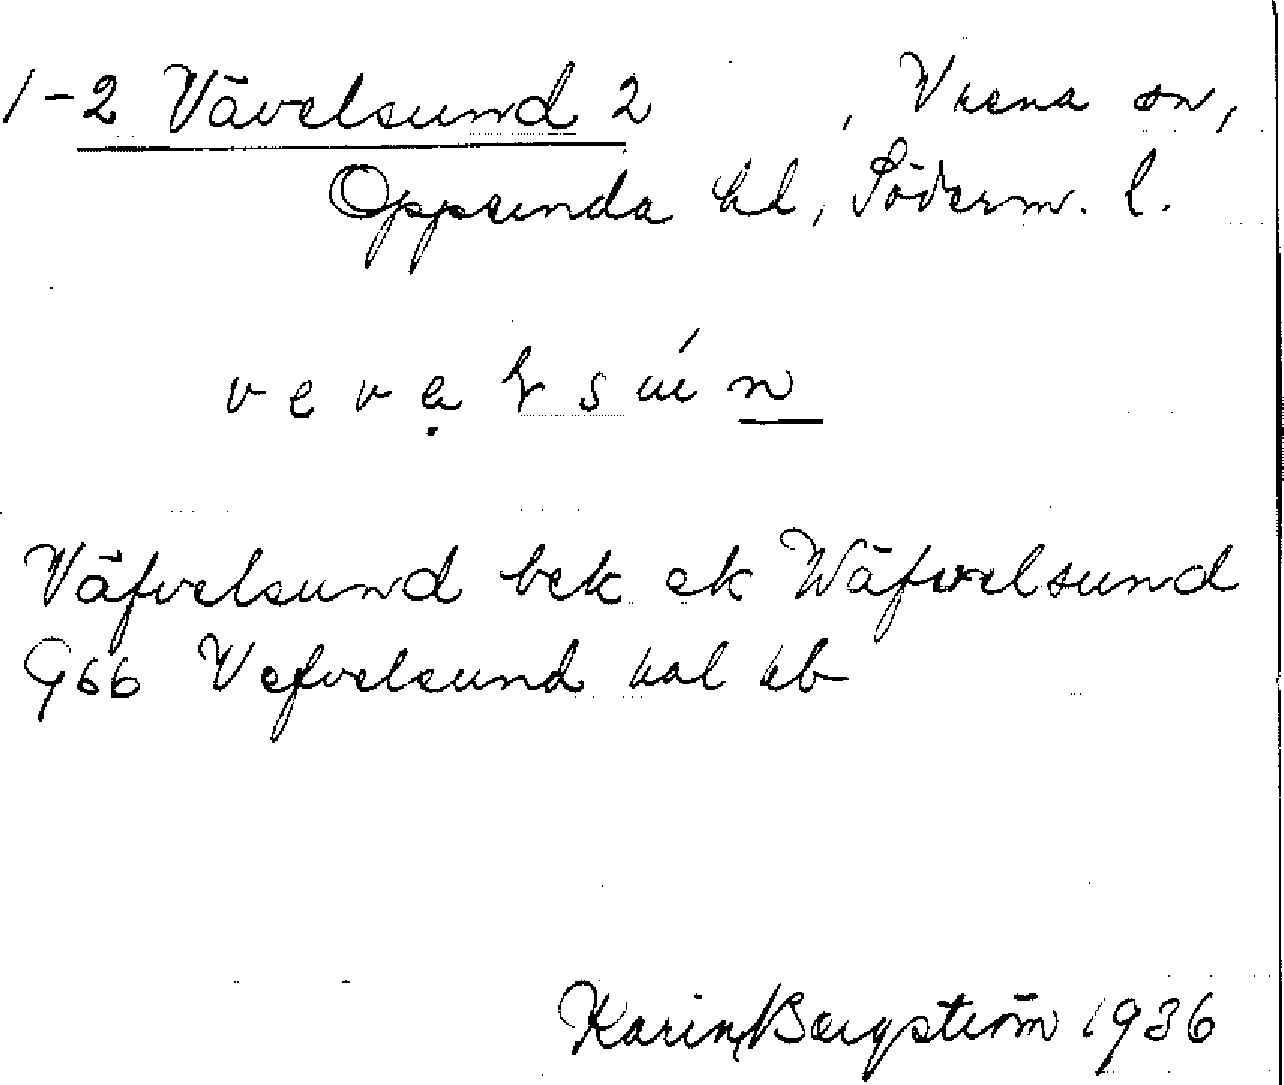 1-2 Vävelsund 2 , Vrena sn,
Oppunda hd, Söderm. l.
Väfvelsund bek ek Wäfvelsund
G66 Vefvelsund hal kb
Karin Bergström 1936